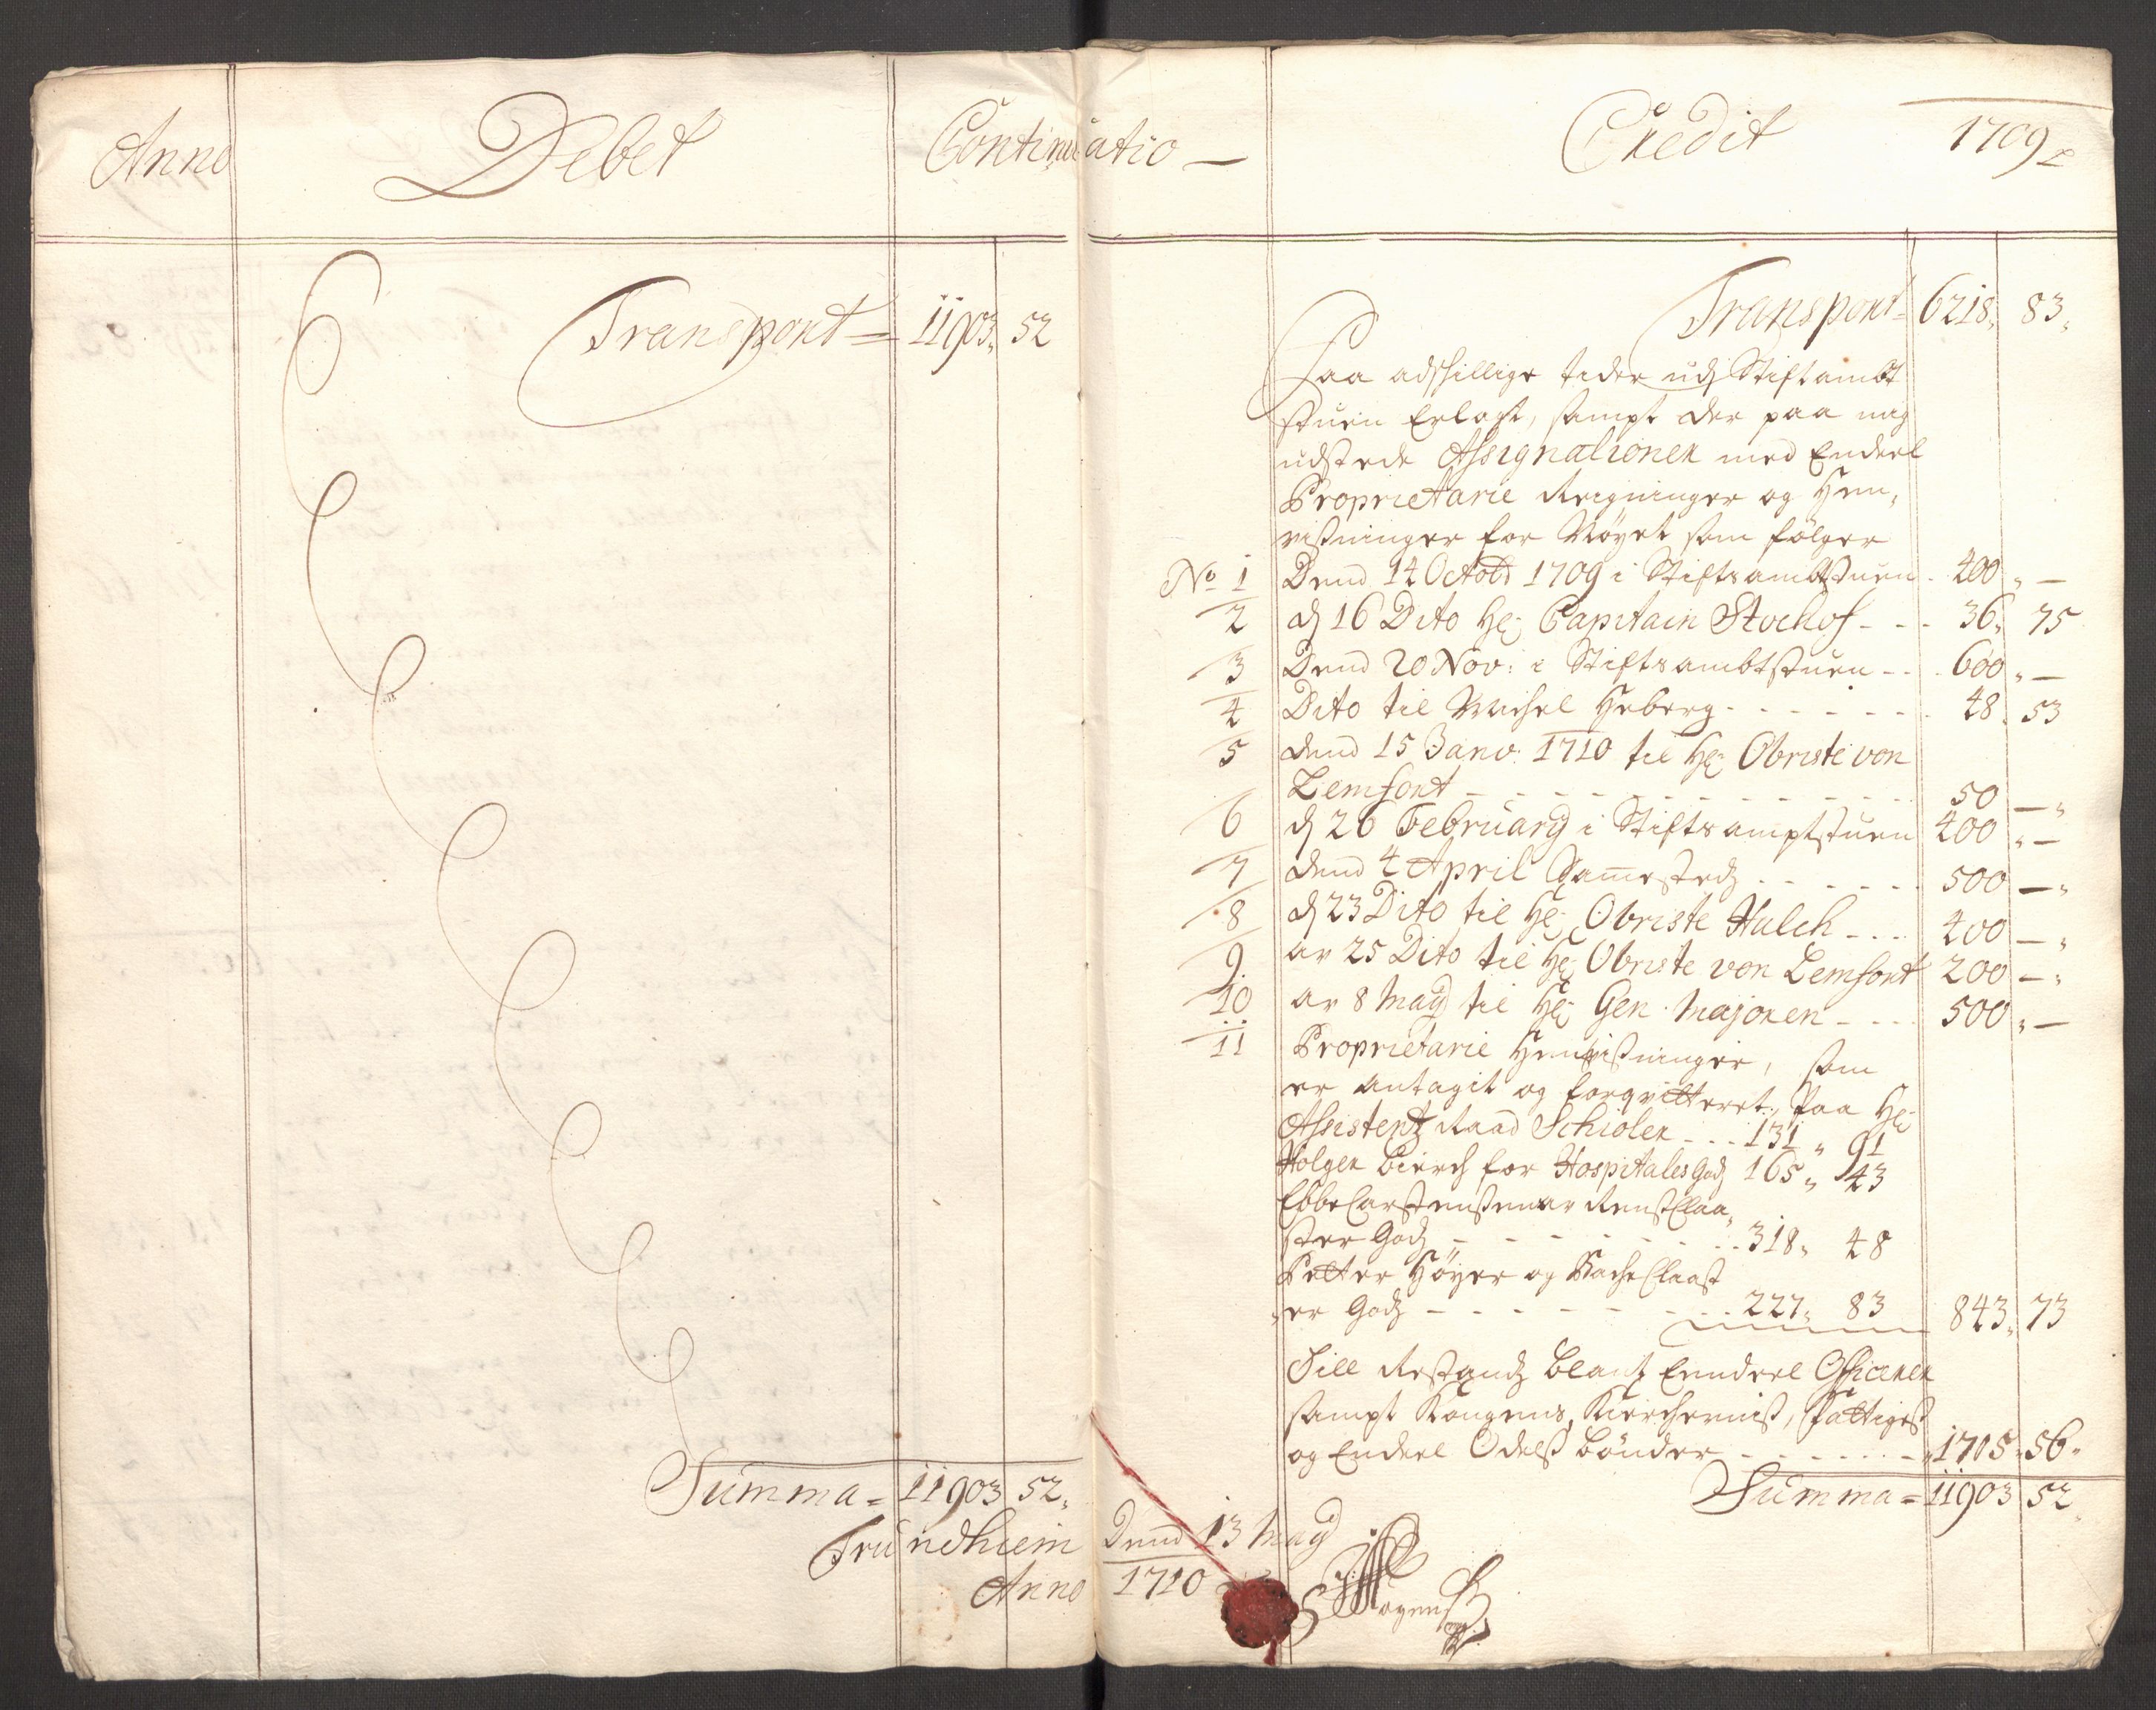 Anno Debet Continuatio — Credit 1709
Transport = 11903 52
Transport = 6218 83
Paa adskillige tider udj Stiftambt
stuen Erlagt, sampt der paa mig
udstede Assignationer med Endeel
Proprietarie Reigninger og Hen,
visninger for Røyet som følger
No 1 Dend 14 Octobr 1709 i Stiftsambtstuen - 400 „ —
2 dj 16 Dito Hr: Capitain Stochof - - - 36 „ 75
3 Dend 20 Nov: i Stiftsambtstuen - - - 600 „ —
4 Dito til Michel Heberg - - - - - - 48 „ 53
5 dend 15 Janv: 1710 til Hr: Obriste von
Lemfort - - - - - - - - - - - 50 — „
6 dj 26 February i Stiftsamptstuen 400 „ —
7 dend 4 April Sammestedz - - - - - - 500 — „
8 dj 23 Dito til Hr: Obriste Halch - - - 400 — „
9 av 25 Dito til Hr: Obriste von Lemfort 200 — „
10 av 8 Maij til Hr: Gen. Majoren - - - 500 „ —
11 Proprietarie Henvisninger, som
er antagit og forqvitteret, Paa Hr:
Assistentz Raad Schiøler - - - 131 „ 91
Holger Bierch for Hospitales Godz 165 „ 43
Ebbe Carstensen av Reins Claa,
ster Godz - - - - - - - 318 „ 48
Petter Høyer og Bache Claast
„er Godz - - - - - - - 227 „ 83 843 „ 73
Till Restandz blant Enndeel Officerer
sampt Kongens, Kircherniß, Fattiges
og Endeel Odelß bønder - - - - - - 1705 „ 56 „
Summa = 11903 52 „
Summa = 11903 52
Trundhiem Dend 13 Maij
Anno 1710